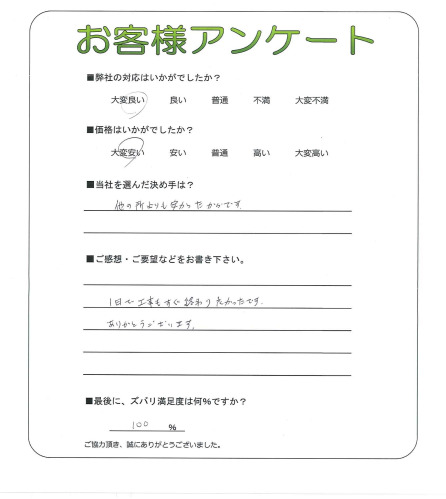 お客様アンケート
■弊社の対応はいかがでしたか？
大変良い 良い 普通 不満 大変不満
■価格はいかがでしたか？
大変安い 安い 普通 高い 大変高い
■当社を選んだ決め手は？
他の所よりも安かったからです。
■ご感想・ご要望などをお書き下さい。
1日で工事もすぐ終わり良かったです。
ありがとうございます。
■最後に、ズバリ満足度は何％ですか？
100 ％
ご協力頂き、誠にありがとうございました。